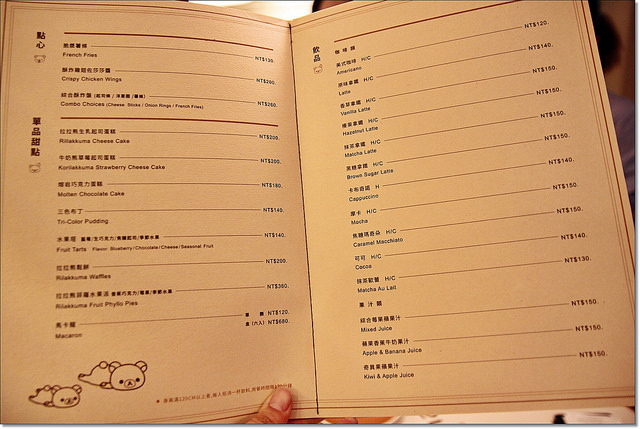 點心
脆煙薯條 NT$130.
French Fries
酥炸雞翅佐莎莎醬 NT$260.
Crispy Chicken Wings
綜合酥炸盤 (起司條 / 洋蔥圈 / 薯條) NT$260.
Combo Choices (Cheese Sticks / Onion Rings / French Fries)
單品甜點
拉拉熊生乳起司蛋糕 NT$200.
Rilakkuma Cheese Cake
牛奶熊草莓起司蛋糕 NT$200.
Korilakkuma Strawberry Cheese Cake
熔岩巧克力蛋糕 NT$180.
Molten Chocolate Cake
三色布丁 NT$140.
Tri-Color Pudding
水果塔 藍莓/生巧克力/焦糖起司/季節水果 NT$140.
Fruit Tarts Flavor: Blueberry / Chocolate / Cheese / Seasonal Fruit
拉拉熊鬆餅 NT$200.
Rilakkuma Waffles
拉拉熊菲蘿水果派 香蕉巧克力/莓果/季節水果 NT$360.
Rilakkuma Fruit Phyllo Pies
馬卡龍 單顆 NT$120.
Macaron 盒 (六入) NT$680.
飲品
咖啡類
美式咖啡 H/C NT$120.
Americano
原味拿鐵 H/C NT$140.
Latte
香草拿鐵 H/C NT$150.
Vanilla Latte
榛果拿鐵 H/C NT$150.
Hazelnut Latte
抹茶拿鐵 H/C NT$150.
Matcha Latte
黑糖拿鐵 H/C NT$150.
Brown Sugar Latte
卡布奇諾 H NT$140.
Cappuccino
摩卡 H/C NT$150.
Mocha
焦糖瑪奇朵 H/C NT$150.
Caramel Macchiato
可可 H/C NT$140.
Cocoa
抹茶歐蕾 H/C NT$130.
Matcha Au Lait
果汁類
綜合莓果蘋果汁 NT$150.
Mixed Juice
蘋果香蕉牛奶果汁 NT$150.
Apple & Banana Juice
奇異果蘋果汁 NT$150.
Kiwi & Apple Juice